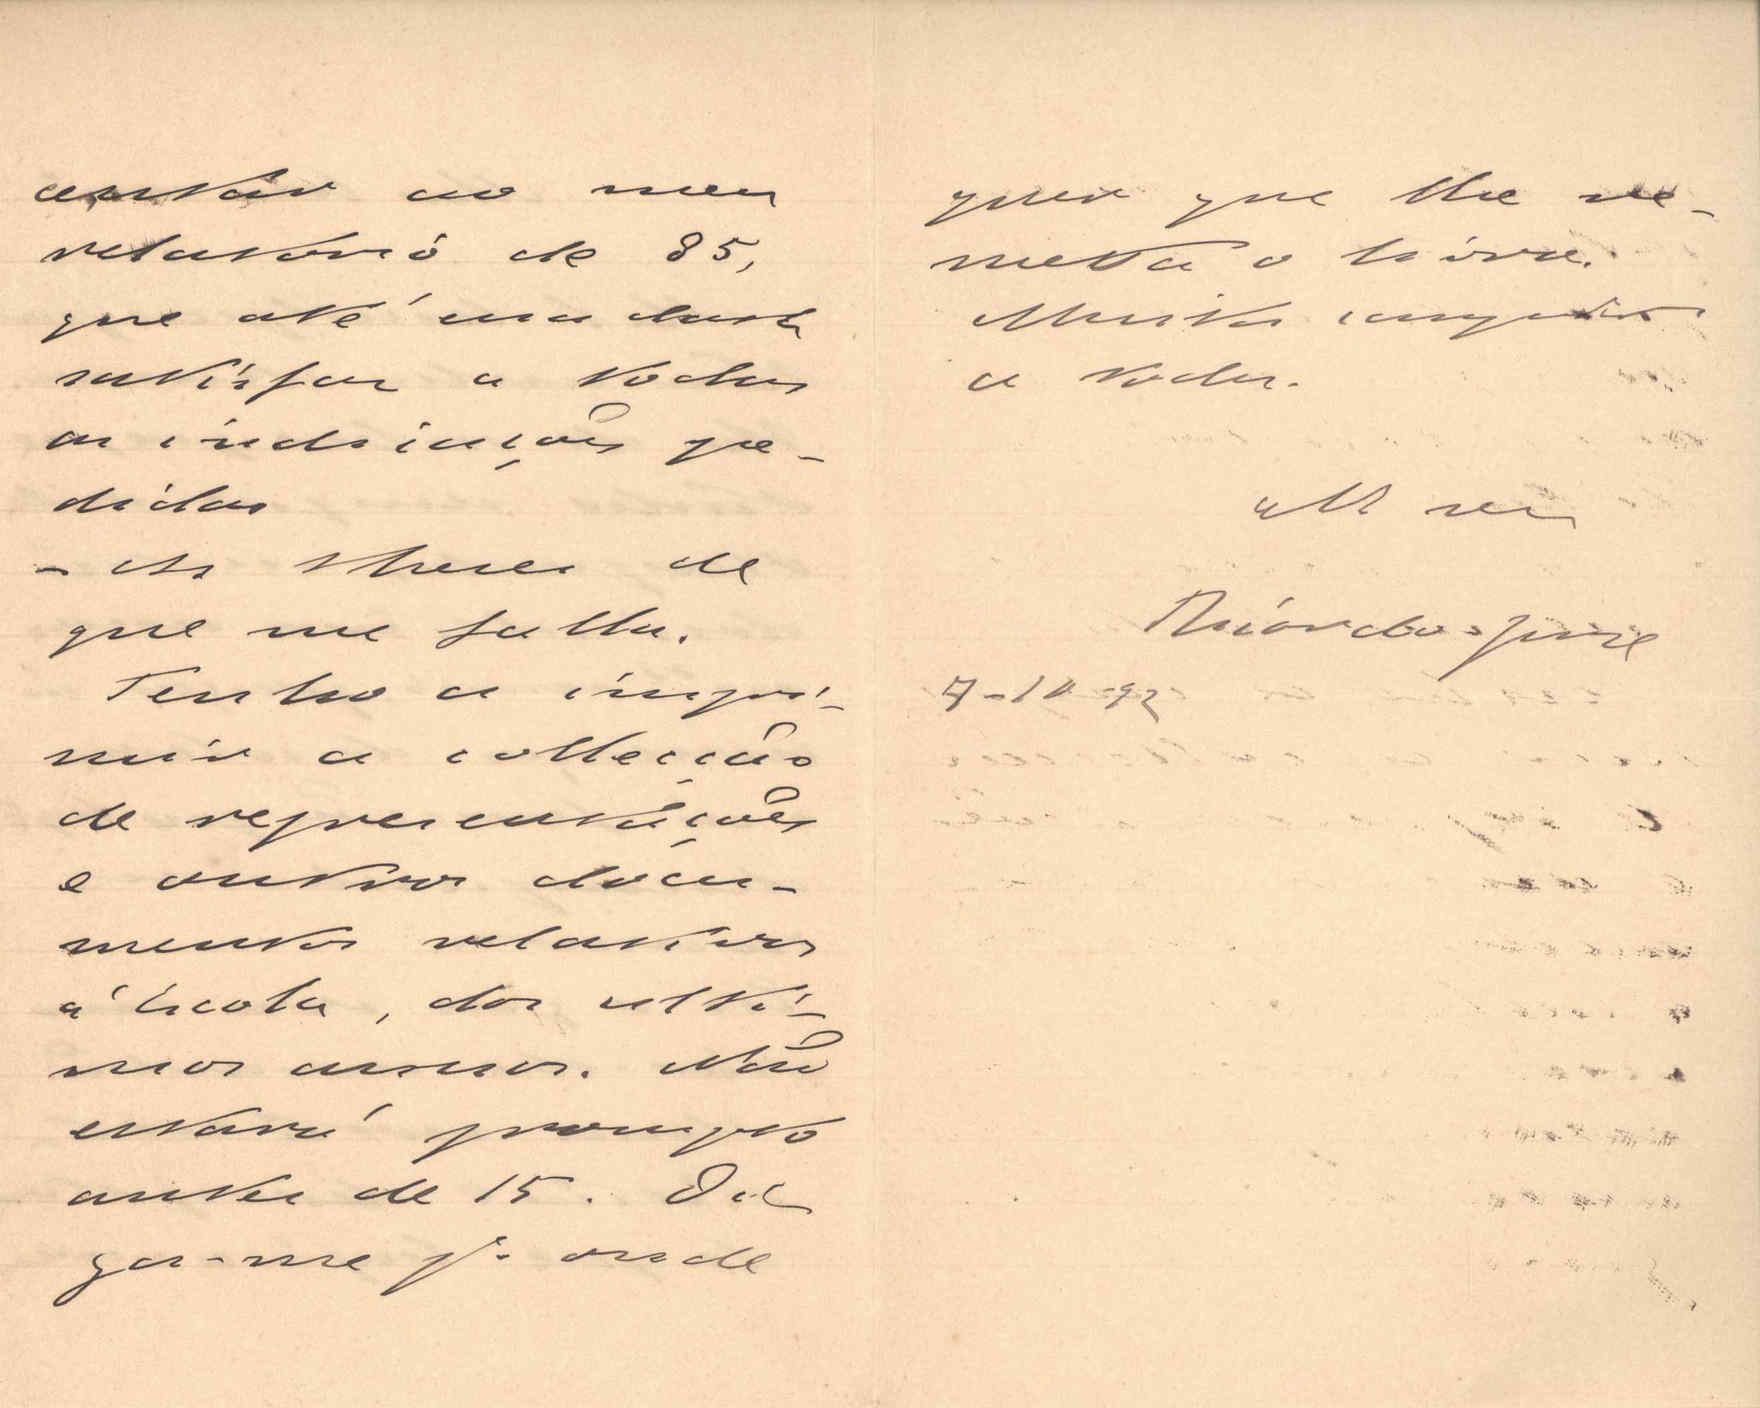 ao meu
relatorio de 85,
que até na data
satisfaz a todas
as indicações pe-
didas
- As theses de
que me falla.
Tenho a impri-
mir a collecção
de representações
e outros docu-
mentos relativos
á Escola, dos ulti-
mos annos. Não
estará prompto
antes de 15. Di
ga-me pª onde
quer que lhe re-
metta o livro.
Muitos
a todos.
7-10-92